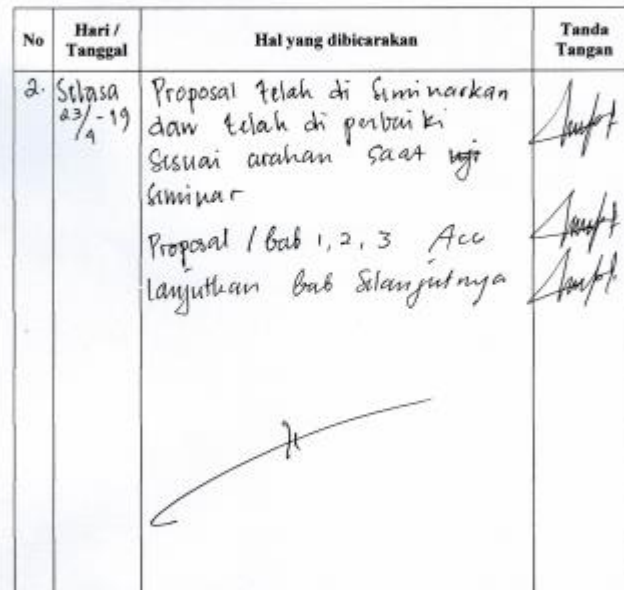 No Hari / Tanggal Hal yang dibicarakan Tanda Tangan
2. Selasa Proposal telah di seminarkan
23/4-19 dan telah di perbaiki
sesuai arahan saat uji
seminar
Proposal / bab 1, 2, 3 Acc
lanjutkan bab selanjutnya